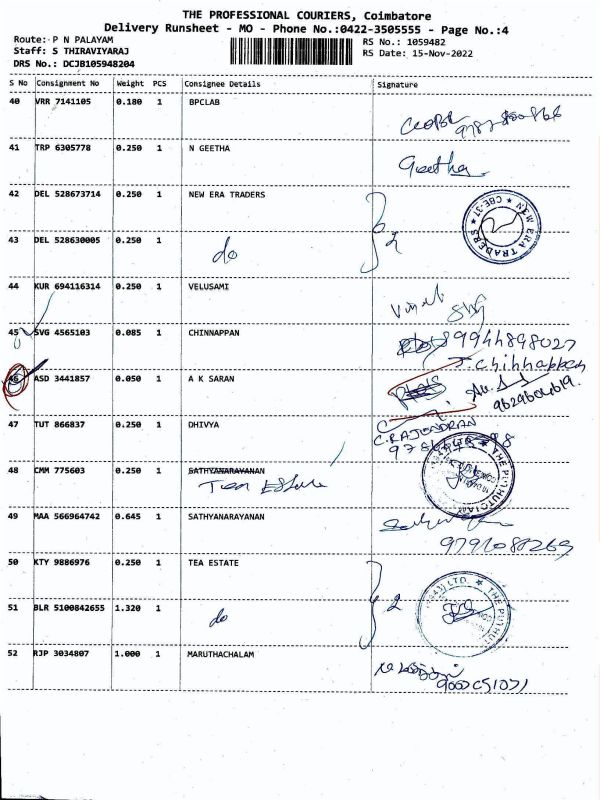 THE PROFESSIONAL COURIERS, Coimbatore
Delivery Runsheet - MO - Phone No.:0422-3505555 - Page No.:4
Route: P N PALAYAM RS No.: 1059482
Staff: S THIRAVIYARAJ RS Date: 15-Nov-2022
DRS No.: DCJB105948204
S No Consignment No Weight PCS Consignee Details Signature
40 VRR 7141105 0.180 1 BPCLAB
41 TRP 6305778 0.250 1 N GEETHA Geetha
42 DEL 528673714 0.250 1 NEW ERA TRADERS NEW ERA TRADERS CBE-37
43 DEL 528630005 0.250 1 do 2
44 KUR 694116314 0.250 1 VELUSAMI
45 SVG 4565103 0.085 1 CHINNAPPAN 9944898027
J. Chinnappan
46 ASD 3441857 0.050 1 A K SARAN
9629604619.
47 TUT 866837 0.250 1 DHIVYA C.RAJENDRAN
48 CMM 775603 0.250 1 SATHYANARAYANAN
Tea Estate
49 MAA 566964742 0.645 1 SATHYANARAYANAN
50 KTY 9886976 0.250 1 TEA ESTATE
51 BLR 5100842655 1.320 1 do 2
52 RJP 3034807 1.000 1 MARUTHACHALAM